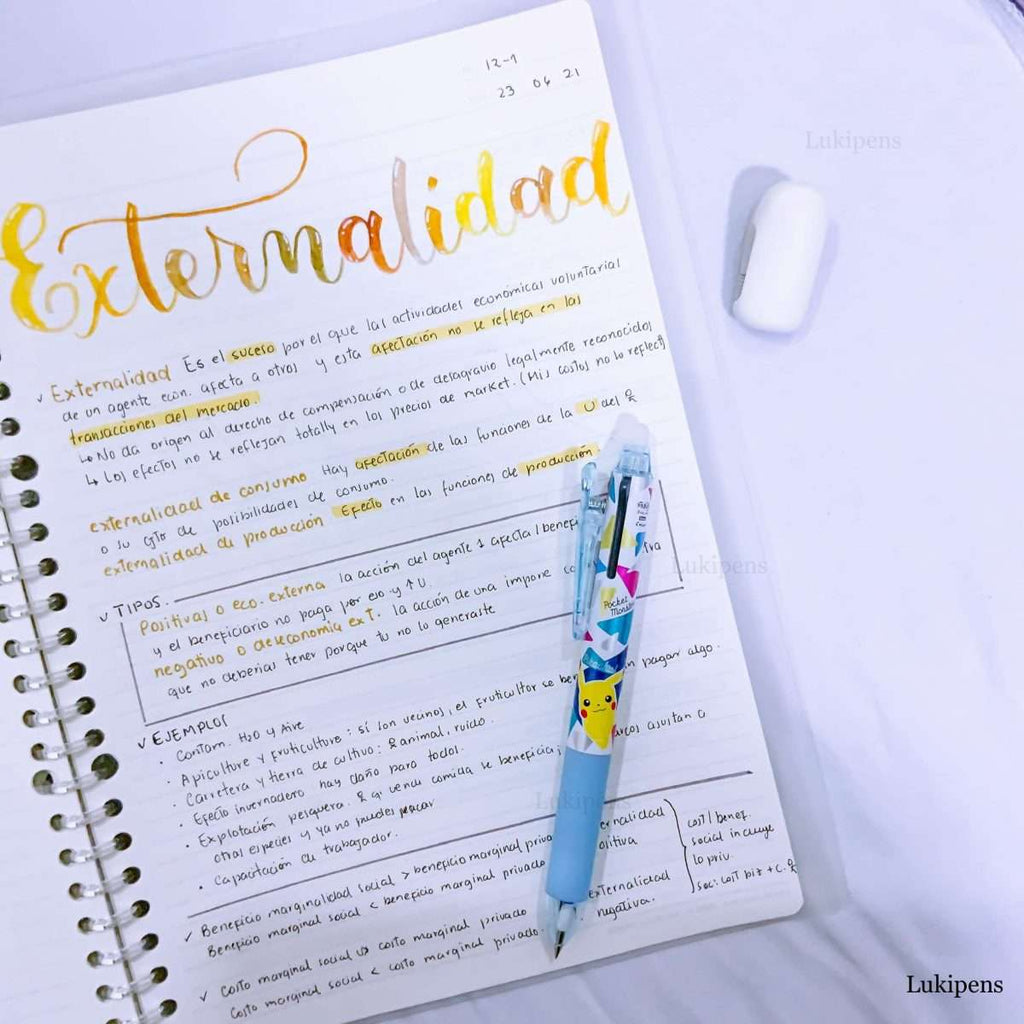 12-1
23 04 21
Lukipens
Externalidad
✓ Externalidad Es el suceso por el que las actividades económicas voluntarias
de un agente econ. afecta a otros y esta afectación no se refleja en las
transacciones del mercado.
↳ No da origen al derecho de compensación o de desagravio legalmente reconocidos
↳ Los efectos no se reflejan totally en los precios de market. (Mis costos no lo reflect)
externalidad de consumo Hay afectación de las funciones de la U del
o su cjto de posibilidades de consumo.
externalidad de producción Efecto en las funciones de producción
Lukipens
✓ TIPOS.
Positivas o eco. externa la acción del agente 1 afecta / benefi
y el beneficiario no paga por eso y ↑ U.
negativo o deseconomía ext. la acción de una impone co tiva
que no deberías tener porque tu no lo generaste
Pocket
✓ EJEMPLOS
• Contam. H2O y Aire
• Apiculture y fruticulture: sí son vecinos, el fruticultor se ben in pagar algo.
• Carretera y tierra de cultivo: animal, ruido.
• Efecto invernadero hay daño para todos.
• Explotación pesquera. q' vende comida se beneficia, arcos asustan a
otras especies y ya no puedes pescar
• Capacitación de trabajador.
Lukipens
✓ Beneficio marginalidad social > beneficio marginal priva ernalidad
Beneficio marginal social < beneficio marginal privado ositiva
cost/benef.
social incluye
lo priv.
✓ costo marginal social costo marginal privado externalidad
Costo marginal social < costo marginal privado. negativa.
Lukipens